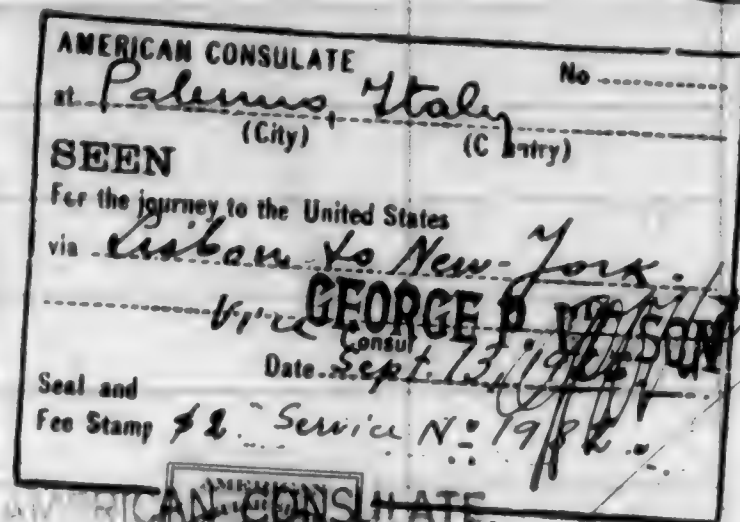 AMERICAN CONSULATE
No
at Palermo, Italy
(City) (C ntry)
SEEN
For the journey to the United States
via Lisbon to New-York.
Vice GEORGE P.
Consul
Date Sept. 13, 19
Seal and
Fee Stamp $2. Service Nº 19
AMERICAN
AMERICAN CONSULATE